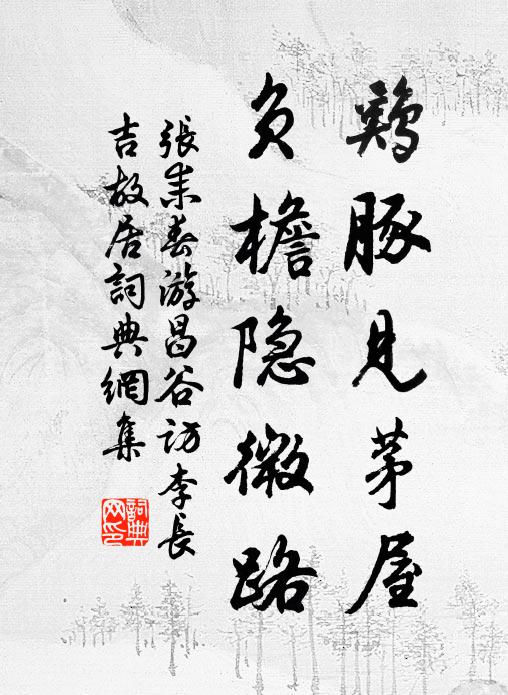 鷄豚見茅屋
负檐隐微路
張耒春游昌谷访李長
吉故居詞典網集
詞典
网印